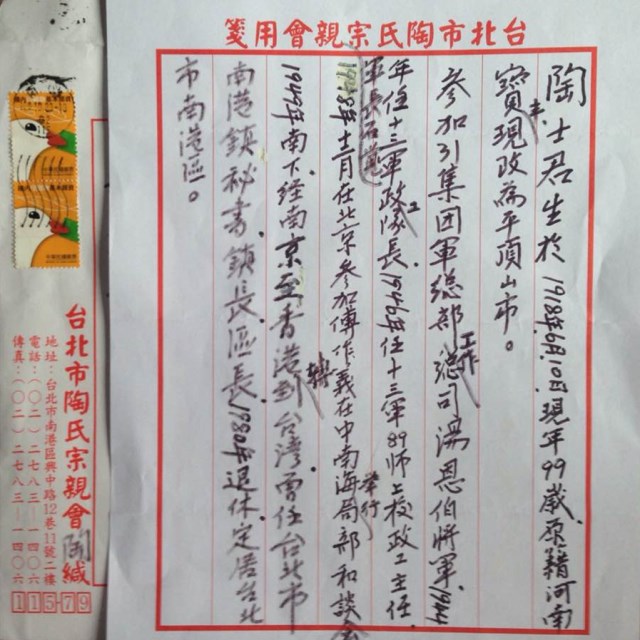 台北市陶氏宗親會用箋
陶士君生於1918年6月10日現年99歲原籍河南
寶丰現改為平頂山市。
參加31集团軍總部工作總司湯恩伯將軍1944
年任十三軍政工隊長1946年任十三軍89師上校政工主任
軍長石覺
1948年十二月在北京參加傅作義在中南海舉行局部和談会
1949年南下經南京至香港轉到台灣曾任台北市
南港鎮秘書鎮長區長1980年退休定居台北
市南港區。
台北市陶氏宗親會 陶緘
地址：台北市南港區興中路12巷11號二樓
電話：(〇二)二七八三—一四〇六
傳真：(〇二)二七八三—一四〇六
11579